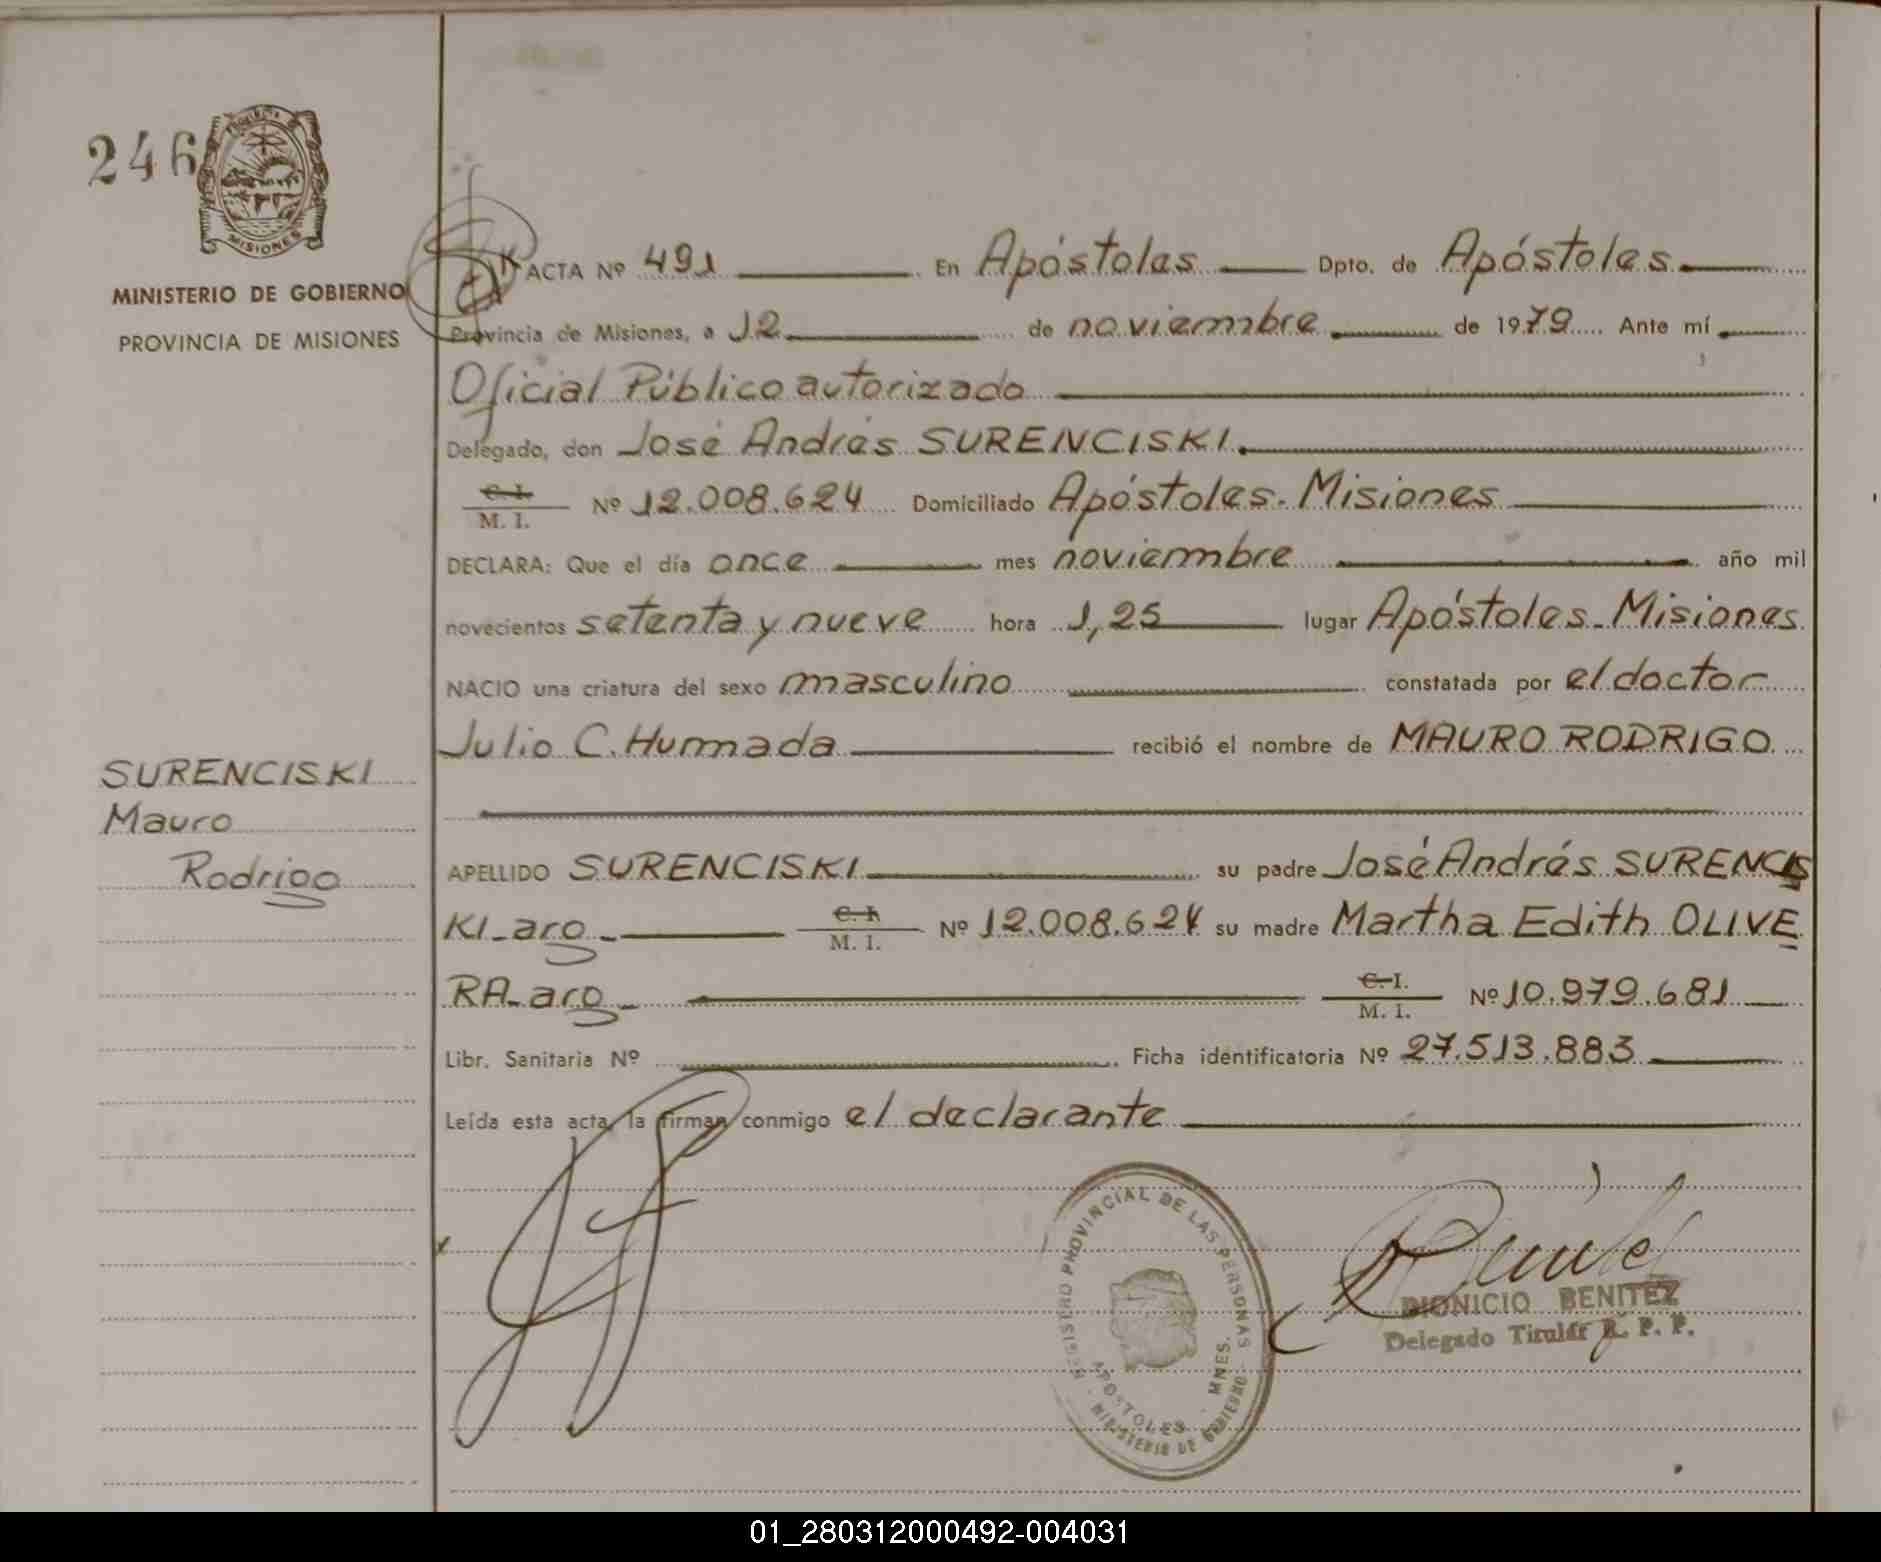 246
MISIONES
MINISTERIO DE GOBIERNO
PROVINCIA DE MISIONES
ACTA Nº 491 En Apóstoles Dpto. de Apóstoles
Provincia de Misiones, a 12 de noviembre de 1979 Ante mí
Oficial Público autorizado
Delegado, don José Andrés SURENCISKI.
C. I. / M. I. Nº 12.008.624 Domiciliado Apóstoles. Misiones
DECLARA: Que el día once mes noviembre año mil
novecientos setenta y nueve hora 1,25 lugar Apóstoles. Misiones.
NACIO una criatura del sexo masculino constatada por el doctor
Julio C. Hummada recibió el nombre de MAURO RODRIGO
SURENCISKI
Mauro
Rodrigo
APELLIDO SURENCISKI su padre José Andrés SURENCIS
KI - arg - C. I. / M. I. Nº 12.008.624 su madre Martha Edith OLIVE
RA - arg - C. I. / M. I. Nº 10.979.681
Libr. Sanitaria Nº Ficha identificatoria Nº 27.513.883
Leída esta acta, la firman conmigo el declarante
REGISTRO PROVINCIAL DE LAS PERSONAS - MINISTERIO DE GOBIERNO
APOSTOLES - MNES.
DIONICIO BENITEZ
Delegado Titular R. P. P.
01_280312000492-004031